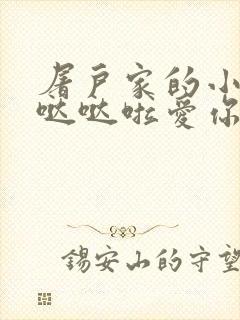 屠户家的小
哒哒啦爱你
锡安山的守望